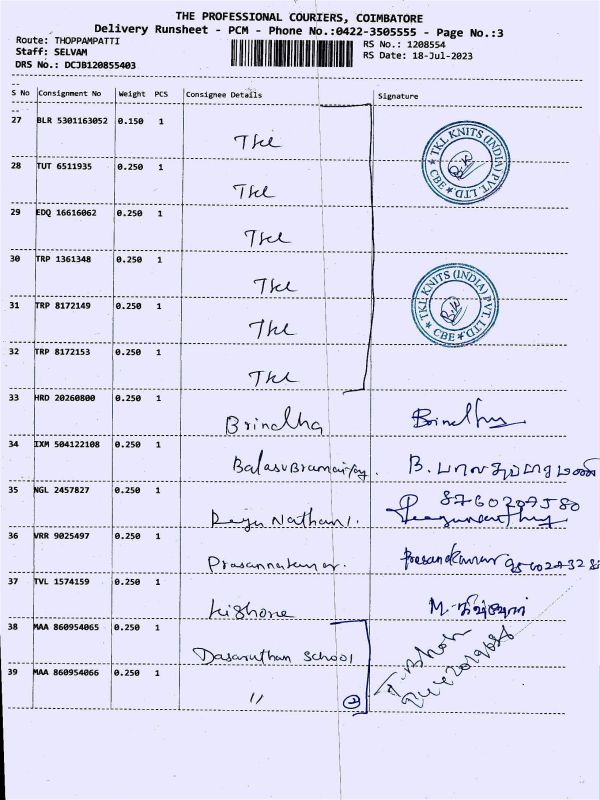 THE PROFESSIONAL COURIERS, COIMBATORE
Delivery Runsheet - PCM - Phone No.:0422-3505555 - Page No.:3
Route: THOPPAMPATTI
RS No.: 1208554
Staff: SELVAM
RS Date: 18-Jul-2023
DRS No.: DCJB120855403
S No Consignment No Weight PCS Consignee Details Signature
27 BLR 5301163052 0.150 1
TKL
TKL KNITS (INDIA) PVT. LTD * CBE *
28 TUT 6511935 0.250 1
TKL
29 EDQ 16616062 0.250 1
TKL
30 TRP 1361348 0.250 1
TKL
TKL KNITS (INDIA) PVT. LTD * CBE *
31 TRP 8172149 0.250 1
TKL
32 TRP 8172153 0.250 1
TKL
33 HRD 20260800 0.250 1
Brindha Brindha
34 IXM 504122108 0.250 1
B.
35 NGL 2457827 0.250 1
Nathan
36 VRR 9025497 0.250 1
Prasannakumar.
37 TVL 1574159 0.250 1
Kishore M.
38 MAA 860954065 0.250 1
Dasaruthan School
39 MAA 860954066 0.250 1
" 2